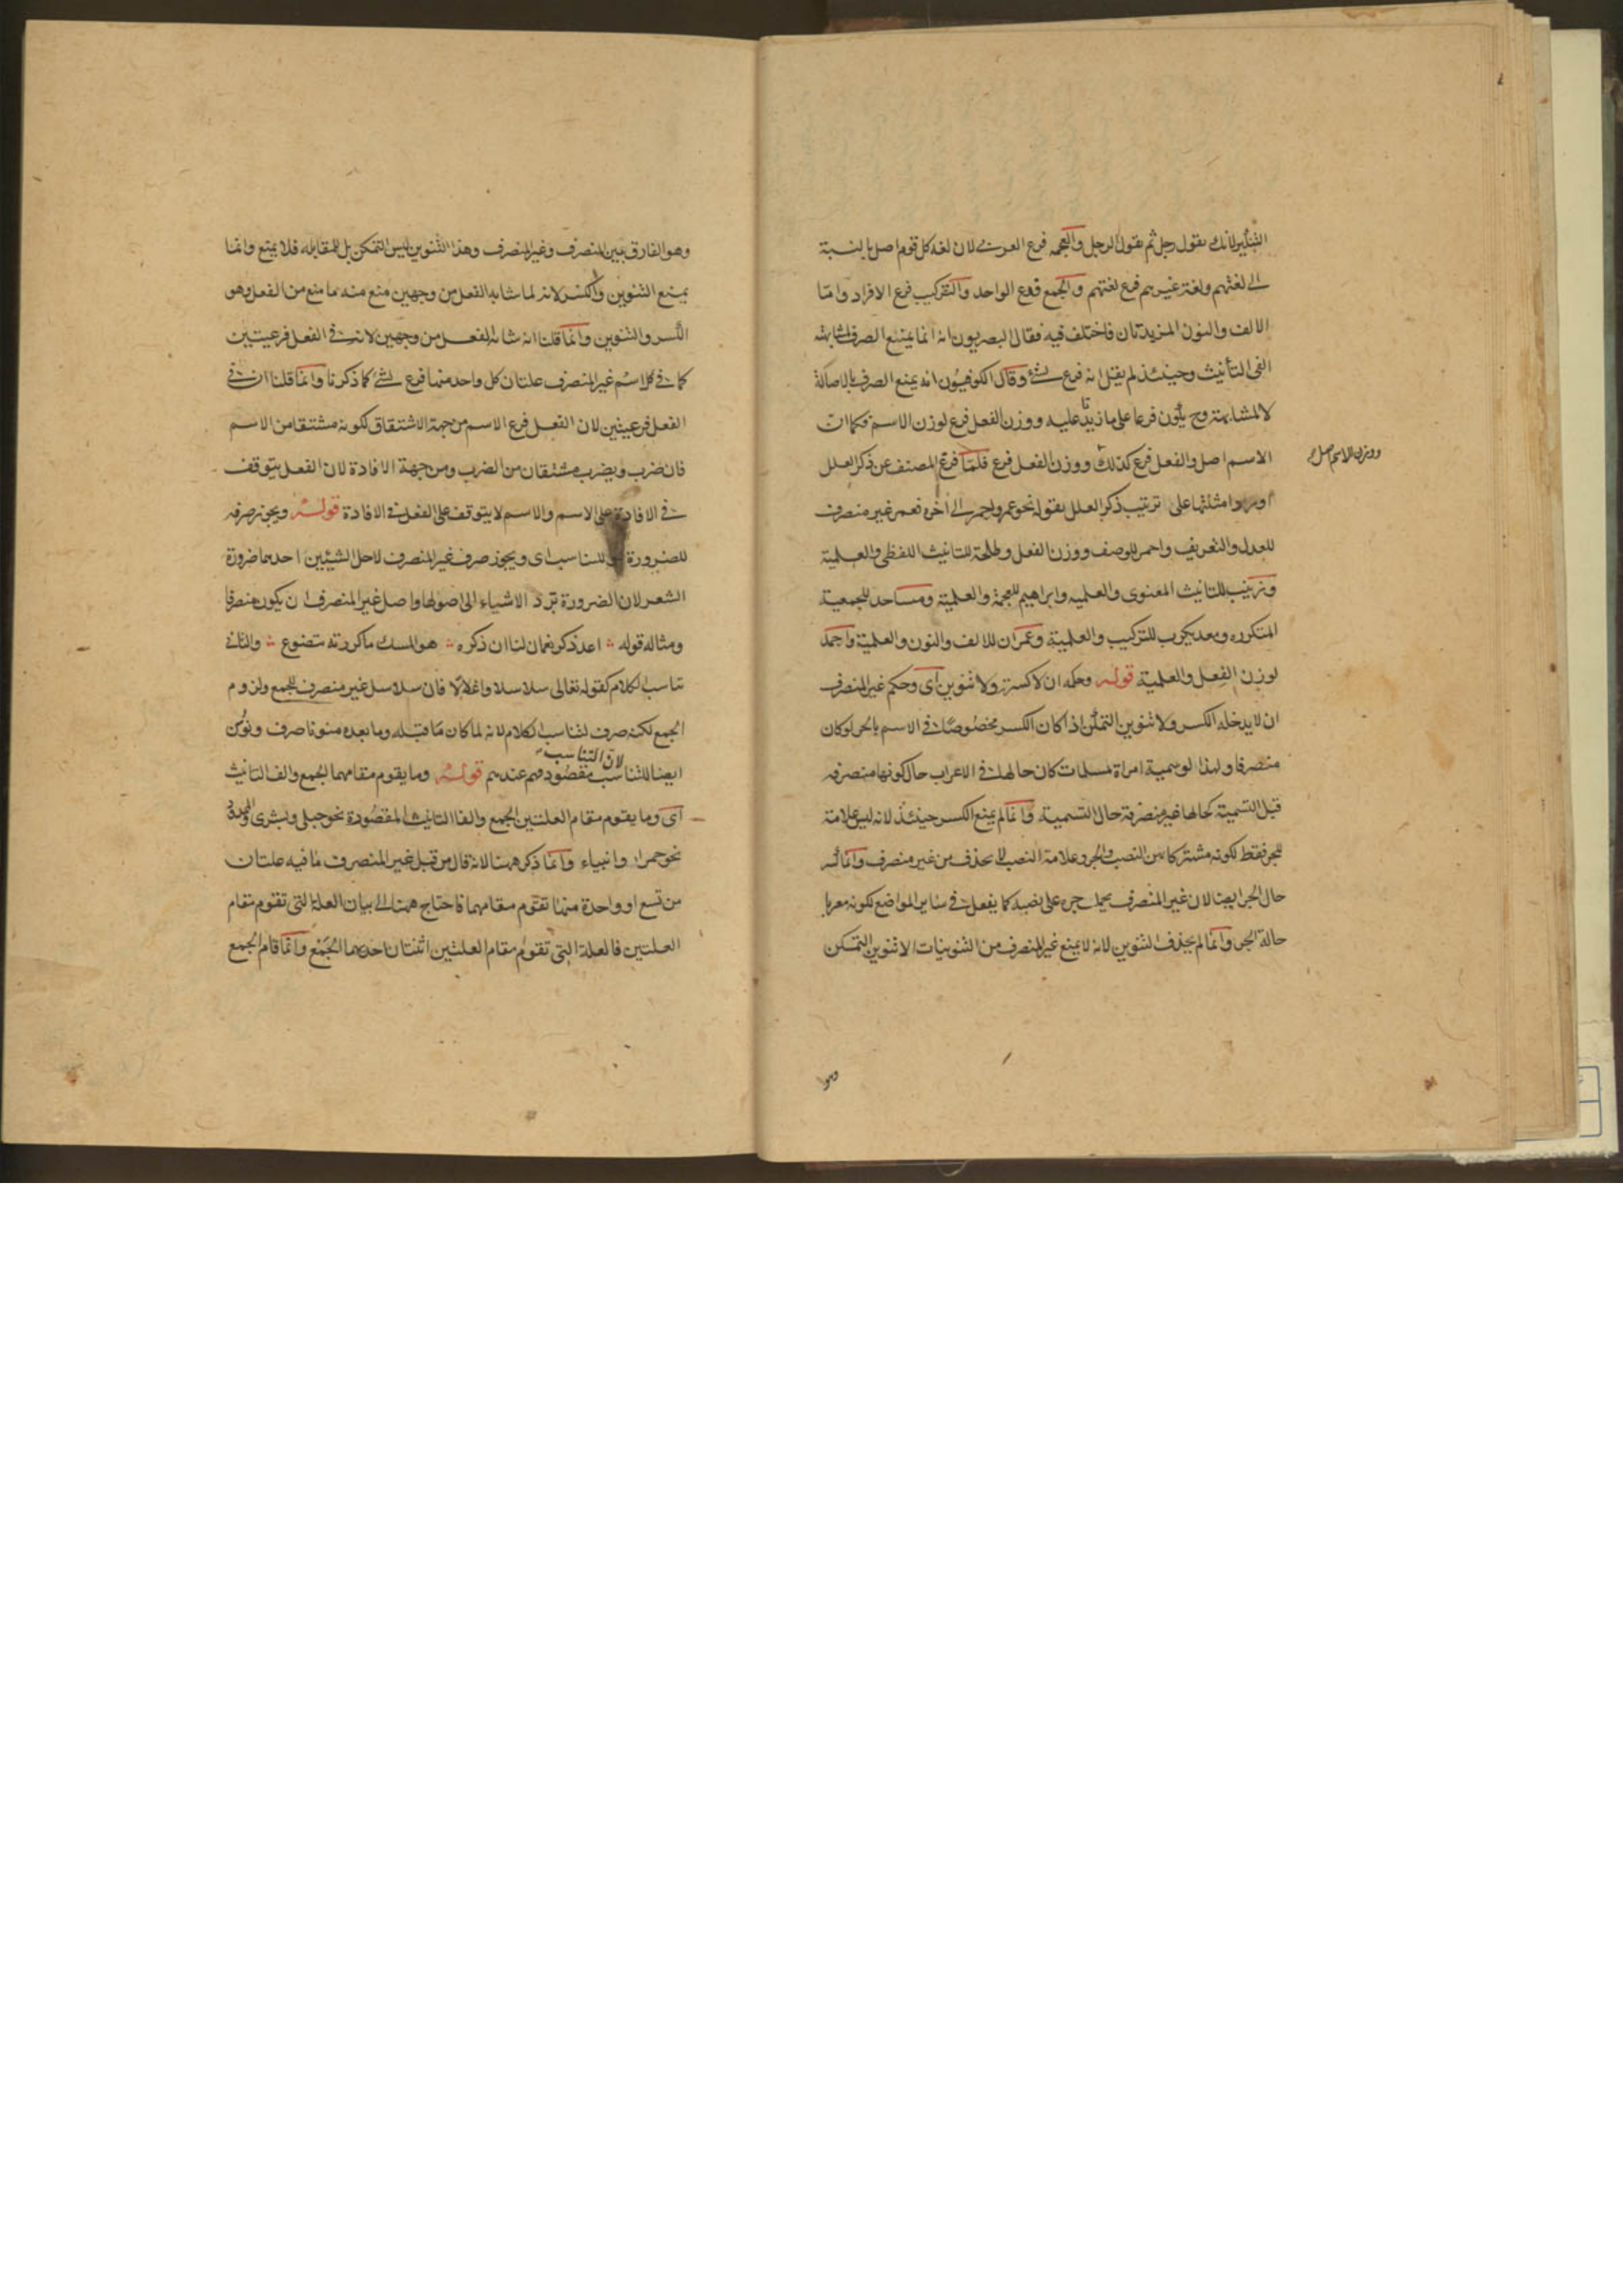 التنكير لانك تقول رجل ثم تقول الرجل والعجمة فرع العربي لان لغة كل قوم اصل بالنسبة
الى لغتهم ولغة غيرهم فرع لغتهم والجمع فرع الواحد والتركيب فرع الافراد واما
الالف والنون المزيدتان فاختلف فيه فقال البصريون انه انما يمتنع الصرف لمشابهته
الفى التأنيث وحينئذ لم يقل انه فرع شئ وقال الكوفيون انه يمنع الصرف بالاصالة
لا لمشابهة وح يكون فرعا على ما زيدتا عليه ووزن الفعل فرع لوزن الاسم فكما ان
الاسم اصل والفعل فرع كذلك ووزن الفعل فرع فلما فرغ المصنف عن ذكر العلل
ووزن الاسم اصل
اورد امثلتها على ترتيب ذكر العلل بقوله نحو عمر واحمر الى آخره فعمر غير منصرف
للعدل والتعريف واحمر للوصف ووزن الفعل وطلحة للتانيث اللفظى والعلمية
وزينب للتانيث المعنوى والعلميه وابراهيم للعجمة والعلمية ومساجد للجمعية
المتكرره ومعديكرب للتركيب والعلمية وعمران للالف والنون والعلمية واحمد
لوزن الفعل والعلمية قوله وحكمه ان لا كسرة ولا تنوين اى وحكم غير المنصرف
ان لا يدخله الكسر ولا تنوين التمكن اذا كان الكسر مخصوصا فى الاسم بالجر لو كان
منصرفا ولهذا لو سمية امراة مسلمات كان حالها فى الاعراب حال كونها منصرفه
قبل التسمية كحالها غير منصرفة حال التسمية وانما لم يمنع الكسر حينئذ لانه ليس علامة
للجر فقط لكونه مشتركا بين النصب والجر وعلامة النصب لا يحذف من غير منصرف وانما
حال الجر ايضا لان غير المنصرف يحمل جره على نصبه كما يفعل فى سائر المواضع لكونه معربا
حالة الجر وانما لم يحذف التنوين لانه لا يمنع غير المنصرف من التنوينات الا تنوين التمكن
وهو
وهو الفارق بين المنصرف وغير المنصرف وهذا التنوين ليس للتمكن بل للمقابله فلا يمنع وانما
يمنع التنوين والكسر لانه لما شابه الفعل من وجهين منع منه ما منع من الفعل وهو
الكسر والتنوين وانما قلنا انه شابه الفعل من وجهين لانه فى الفعل فرعيتين
كما فى كل اسم غير المنصرف علتان كل واحد منهما فرع لشئ كما ذكرنا وانما قلنا ان فى
الفعل فرعيتين لان الفعل فرع الاسم من جهة الاشتقاق لكونه مشتقا من الاسم
فان ضرب ويضرب مشتقان من الضرب ومن جهة الافادة لان الفعل يتوقف
فى الافادة على الاسم والاسم لا يتوقف على الفعل فى الافادة قوله ويجوز صرفه
للضرورة او للتناسب اى ويجوز صرف غير المنصرف لاحل الشيئين احدهما ضرورة
الشعر لان الضرورة ترد الاشياء الى اصولها واصل غير المنصرف ان يكون منصرفا
ومثاله قوله اعد ذكر نعمان لنا ان ذكره هو المسك ما كررته يتضوع والثانى
تناسب الكلام كقوله تعالى سلاسلا واغلالا فان سلاسل غير منصرف للجمع ولزوم
الجمع لكنه صرف لتناسب الكلام لانه لما كان ما قبله وما بعده منونا صرف ونون
ايضا للتناسب لان التناسب مقصودهم عندهم قوله وما يقوم مقامهما الجمع والف التانيث
اى وما يقوم مقام العلتين الجمع والفا التانيث المقصورة نحو حبلى وبشرى والممدودة
نحو حمراء وانبياء وانما ذكر ههنا لانه قال من قبل غير المنصرف ما فيه علتان
من تسع او واحدة منها تقوم مقامهما فاحتاج ههنا الى بيان العلة التى تقوم مقام
العلتين فالعلة التى تقوم مقام العلتين اثنتان احديهما الجمع وانما قام الجمع